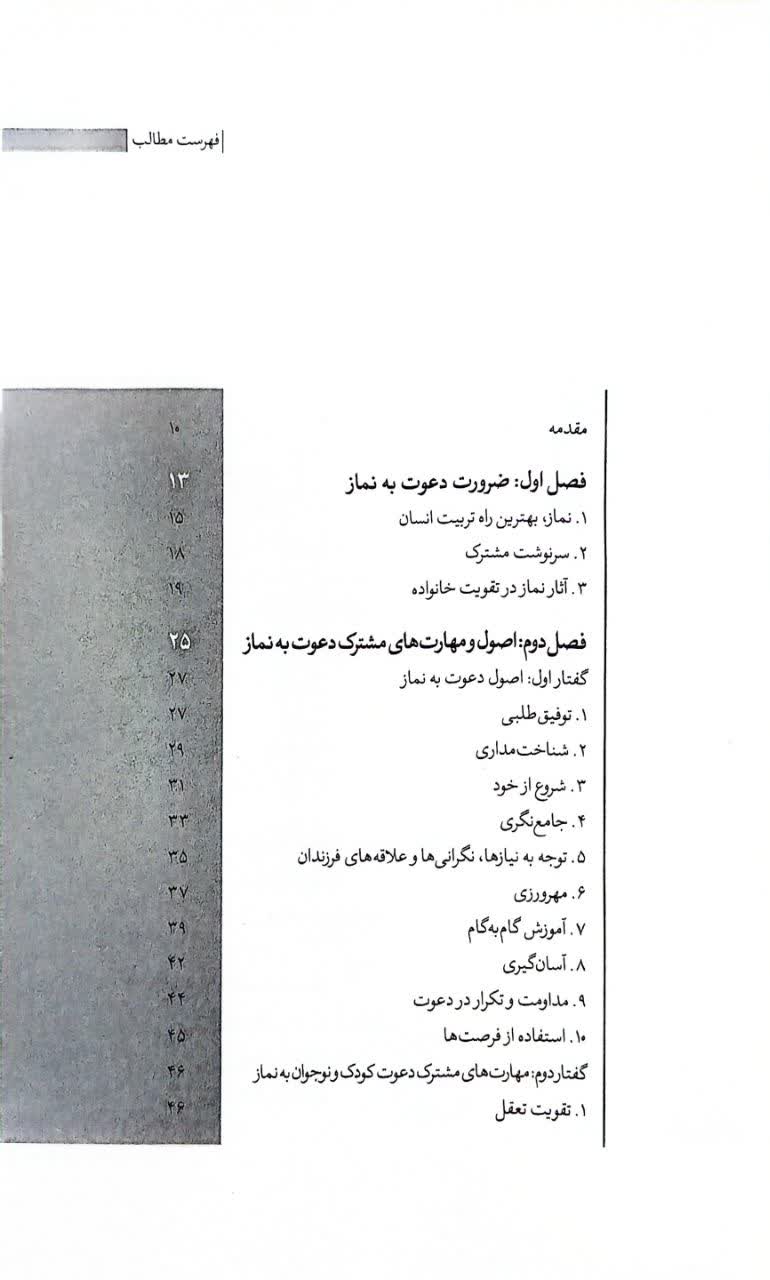 فهرست مطالب
مقدمه ۱۰
فصل اول: ضرورت دعوت به نماز ۱۳
۱. نماز، بهترین راه تربیت انسان ۱۵
۲. سرنوشت مشترک ۱۸
۳. آثار نماز در تقویت خانواده ۱۹
فصل دوم: اصول و مهارت‌های مشترک دعوت به نماز ۲۵
گفتار اول: اصول دعوت به نماز ۲۷
۱. توفیق‌طلبی ۲۷
۲. شناخت‌مداری ۲۹
۳. شروع از خود ۳۱
۴. جامع‌نگری ۳۳
۵. توجه به نیازها، نگرانی‌ها و علاقه‌های فرزندان ۳۵
۶. مهرورزی ۳۷
۷. آموزش گام‌به‌گام ۳۹
۸. آسان‌گیری ۴۲
۹. مداومت و تکرار در دعوت ۴۴
۱۰. استفاده از فرصت‌ها ۴۵
گفتار دوم: مهارت‌های مشترک دعوت کودک و نوجوان به نماز ۴۶
۱. تقویت تعقل ۴۶